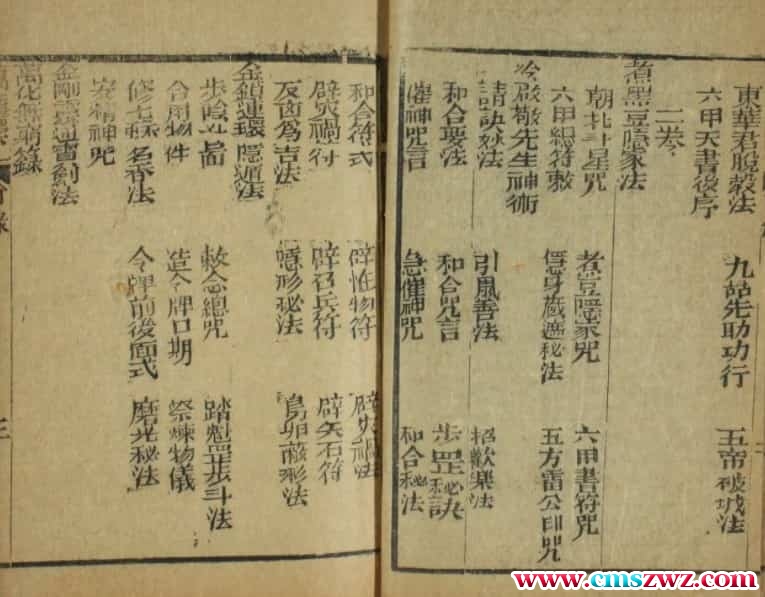 東華君脫殼法 九姑先助功行 五帝破城法
六甲天書後序
二卷
煮黑豆隱家法
朝北斗星咒 煮豆隱家咒 六甲書符咒
六甲總符敕 隱身藏遁秘法 五方雷公印咒
冷啟敬先生神術
請訣法 引風善法 招歡樂法
和合要法 和合咒言 步罡秘訣
催神咒言 急催神咒 和合秘法
和合符式 辟怪物符
辟災禍符 辟刀兵符 辟矢石符
反凶為吉法 隱形秘法 鳥卵蔽形法
金鎖連環隱遁法
步陰斗啚 敕念總咒 踏魁罡步斗法
合用物件 造令牌日期 祭煉物儀
名香法 令牌前後面式 磨光秘法
安精神咒
金剛靈通雷劍法
萬化無窮錄
三
www.cmszwz.com